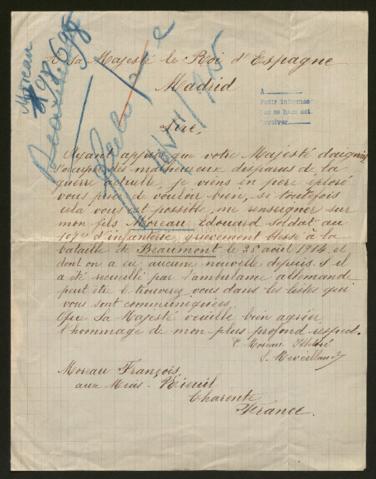 Moreau
A sa Majesté le Roi d'Espagne
Madrid
A
Sire,
Ayant appris que votre Majesté daignait
s'occuper des malheureux disparus de la
guerre actuelle, je viens en père éploré
vous prier de vouloir bien, si toutefois
cela vous est possible, me renseigner sur
mon fils Moreau Edouard, soldat au
107e d'infanterie grièvement blessé à la
bataille de Beaumont le 28 août 1914 et
dont on a eu aucune nouvelle depuis. il a
été recueilli par l'ambulance allemande
peut être le trouverez vous dans les listes qui
vous sont communiquées.
Que Sa Majesté veuille bien agréer
l'hommage de mon plus profond respect.
Moreau
Moreau François,
aux Mias - Rieuil
Charente
France.